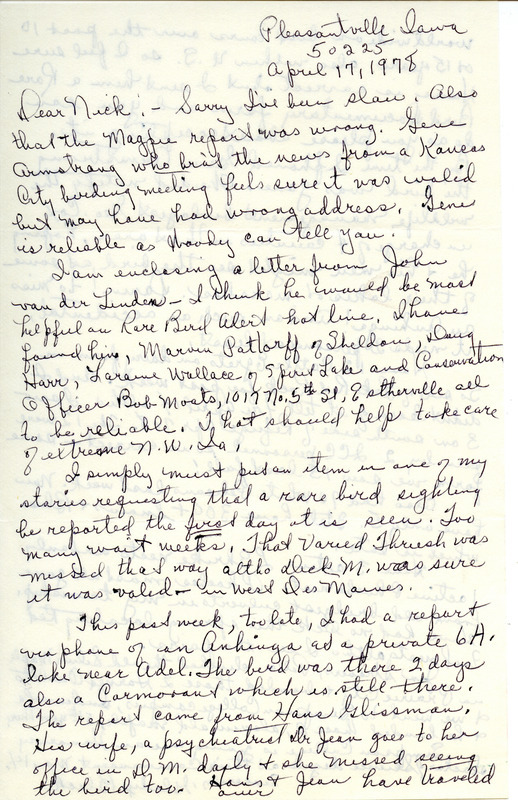 Pleasantville, Iowa
50225
April 17, 1978
Dear Nick, - Sorry I've been slow. Also
that the Magpie report was wrong. Gene
Armstrong who bro't the news from a Kansas
City birding meeting feels sure it was valid
but may have had wrong address. Gene
is reliable as Woody can tell you.
I am enclosing a letter from John
van der Linden - I think he would be most
helpful on Rare Bird Alert hot line. I have
found him, Marvin Patlorff of Sheldon, Doug
Harr, Laraine Wallace of Spirit Lake and Conservation
Officer Bob Moats, 1017 No. 5th St., Estherville all
to be reliable. That should help take care
of extreme N.W. Ia.
I simply must put an item in one of my
stories requesting that a rare bird sighting
be reported the first day it is seen. Too
many wait weeks. That Varied Thrush was
missed that way altho Dick M. was sure
it was valid - in West Des Moines.
This past week, too late, I had a report
via phone of an Anhinga at a private 6 A.
lake near Adel. The bird was there 2 days
also a Cormorant which is still there.
The report came from Hans Glissman.
His wife, a psychiatrist Dr. Jean goes to her
office in D.M. daily & she missed seeing
the bird too. Hans & Jean have traveled
over